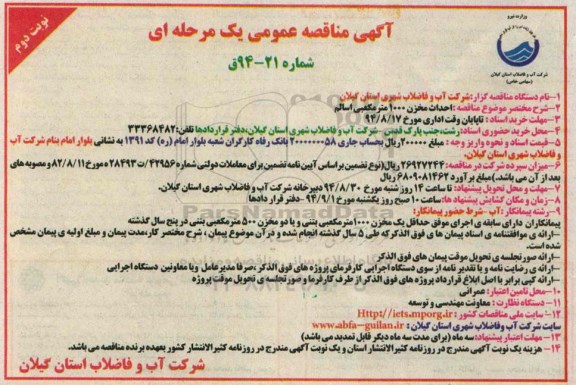 وزارت نیرو
شرکت آب و فاضلاب استان گیلان
(سهامی خاص)
نوبت دوم
آگهی مناقصه عمومی یک مرحله ای
شماره ۲۱-۹۴ق
۱-نام دستگاه مناقصه گزار:شرکت آب و فاضلاب شهری استان گیلان
۲-شرح مختصر موضوع مناقصه :احداث مخزن ۱۰۰۰ مترمکعبی اسالم
۳-مهلت خرید اسناد : تاپایان وقت اداری مورخ ۹۴/۸/۱۷
۴-محل خرید حضوری اسناد:رشت،جنب پارک قدس-شرکت آب و فاضلاب شهری استان گیلان،دفتر قراردادها تلفن:۳۳۳۶۸۴۸۲
۵-قیمت اسناد و نحوه واریز وجه : مبلغ ۲۰۰۰۰۰ریال بحساب جاری ۲۰۰۰۰۰۰۰۵۸ بانک رفاه کارگران شعبه بلوار امام (ره) کد۱۳۹۱ به نشانی بلوار امام بنام شرکت آب و فاضلاب شهری استان گیلان.
۶-میزان سپرده شرکت در مناقصه:۲۶۹۲۷۲۴۴۰ریال(نوع تضمین براساس آیین نامه تضمین برای معاملات دولتی شماره ۴۲۹۵۶/ت۲۸۴۹۳ه مورخ۸۲/۸/۱۱ و مصوبه های بعد از آن می باشد.)مبلغ برآورد ۶۸۰۹۰۸۱۴۶۲ ریال
۷-مهلت و محل تحویل پیشنهاد: تا ساعت ۱۴ روز شنبه مورخ ۹۴/۸/۳۰ دبیرخانه شرکت آب و فاضلاب شهری استان گیلان.
۸-زمان و مکان گشایش پیشنهاد ها:ساعت ۱۰ صبح روز یکشنبه مورخ ۹۴/۹/۱-دفتر قرار دادها
۹-رشته پیمانکار: آب -شرط حضور پیمانکار:
پیمانکاران دارای سابقه ی اجرای موفق حداقل یک مخزن ۱۰۰۰ مترمکعبی بتنی و یا دو مخزن ۵۰۰ مترمکعبی بتنی در پنج سال گذشته
-ارائه ی موافقتنامه ی اسناد پیمان ها ی فوق الذکر که طی ۵ سال گذشته انجام شده و در آن موضوع پیمان ، شرح مختصر کار،مدت پیمان و مبلغ اولیه ی پیمان مشخص شده است.
-ارائه صور تجلسه ی تحویل موقت پیمان های فوق الذکر
-ارائه ی رضایت نامه و یا تقدیر نامه از سوی دستگاه اجرایی کارفرمای پروژه های فوق الذکر ،صرفا مدیرعامل ویا معاونین دستگاه اجرایی
-ارائه کپی برابر با اصل ابلاغ قرارداد پروژه های فوق الذکر از طرف کارفرما و صور تجلسه ی تحویل موقت پروژه
۱۰-محل تامین اعتبار: عمرانی
۱۱-دستگاه نظارت : معاونت مهندسی و توسعه
۱۲-سایت ملی مناقصات کشور : Http://iets.mporg.ir
سایت شرکت آب وفاضلاب شهری استان گیلان : www.abfa-guilan.ir
۱۳-مهلت اعتبار پیشنهاد:سه ماه (برای مدت سه ماه دیگر قابل تمدید می باشد)
۱۴-هزینه یک نوبت آگهی مندرج در روزنامه کثیرالانتشار استان و یک نوبت آگهی مندرج در روزنامه کثیرالانتشار کشور بعهده برنده مناقصه می باشد.
شرکت آب و فاضلاب استان گیلان